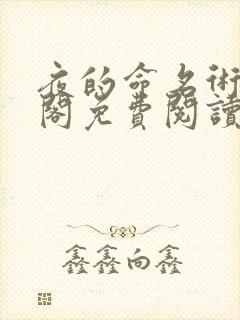 夜的命名術
閣免費閱讀
鑫鑫向鑫